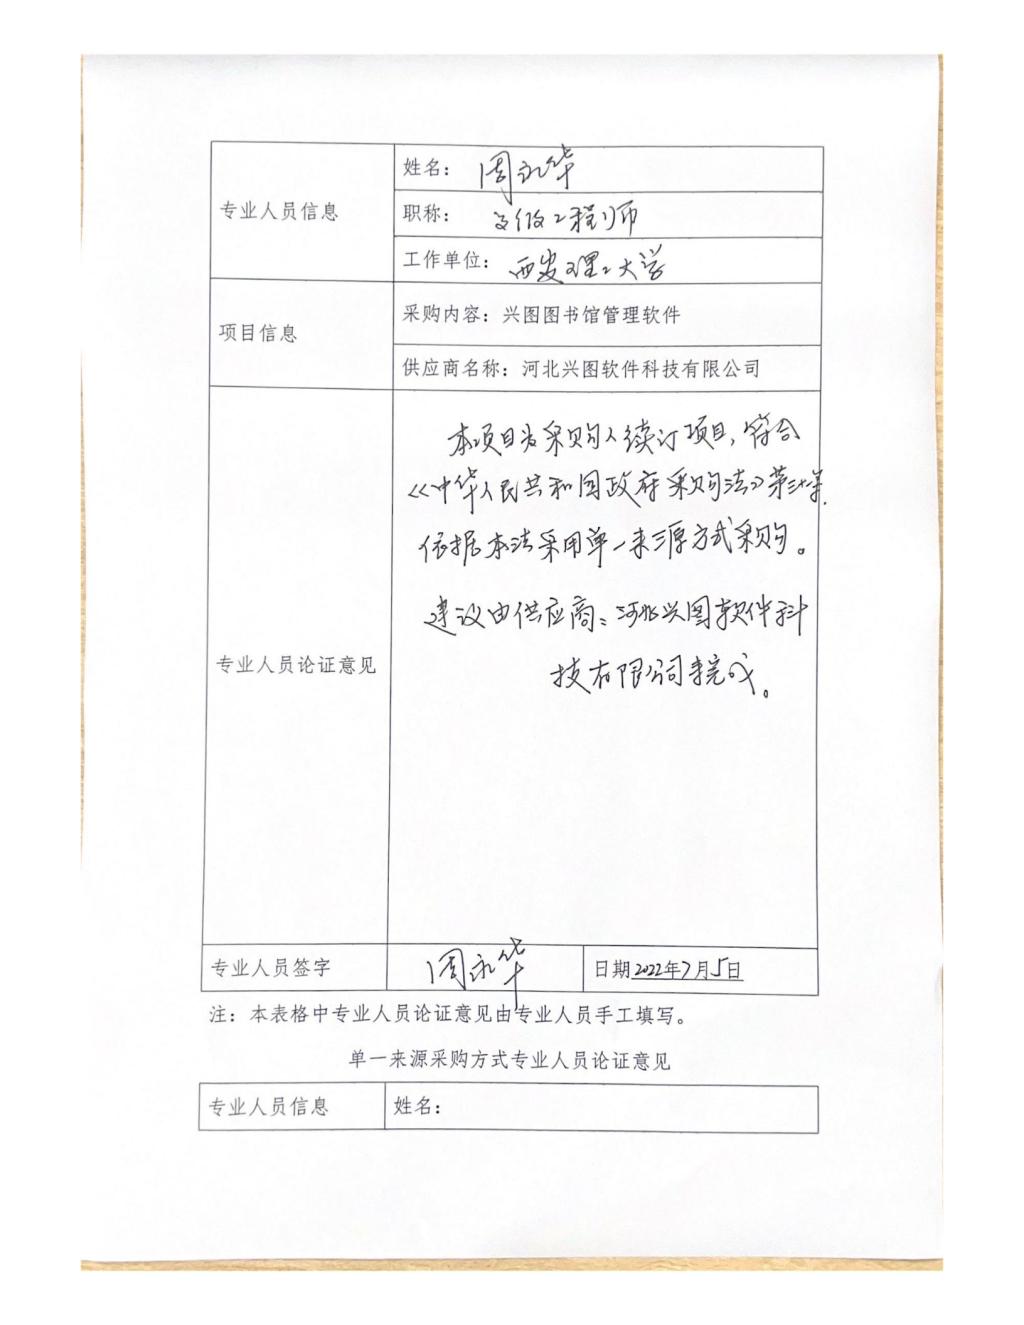 专业人员信息
姓名：周永华
职称：高级工程师
工作单位：西安理工大学
项目信息
采购内容：兴图图书馆管理软件
供应商名称：河北兴图软件科技有限公司
专业人员论证意见
本项目为采购人续订项目，符合
《中华人民共和国政府采购法》第三十一条
依据本法采用单一来源方式采购。
建议由供应商：河北兴图软件科
技有限公司来完成。
专业人员签字
周永华
日期2022年7月5日
注：本表格中专业人员论证意见由专业人员手工填写。
单一来源采购方式专业人员论证意见
专业人员信息
姓名：